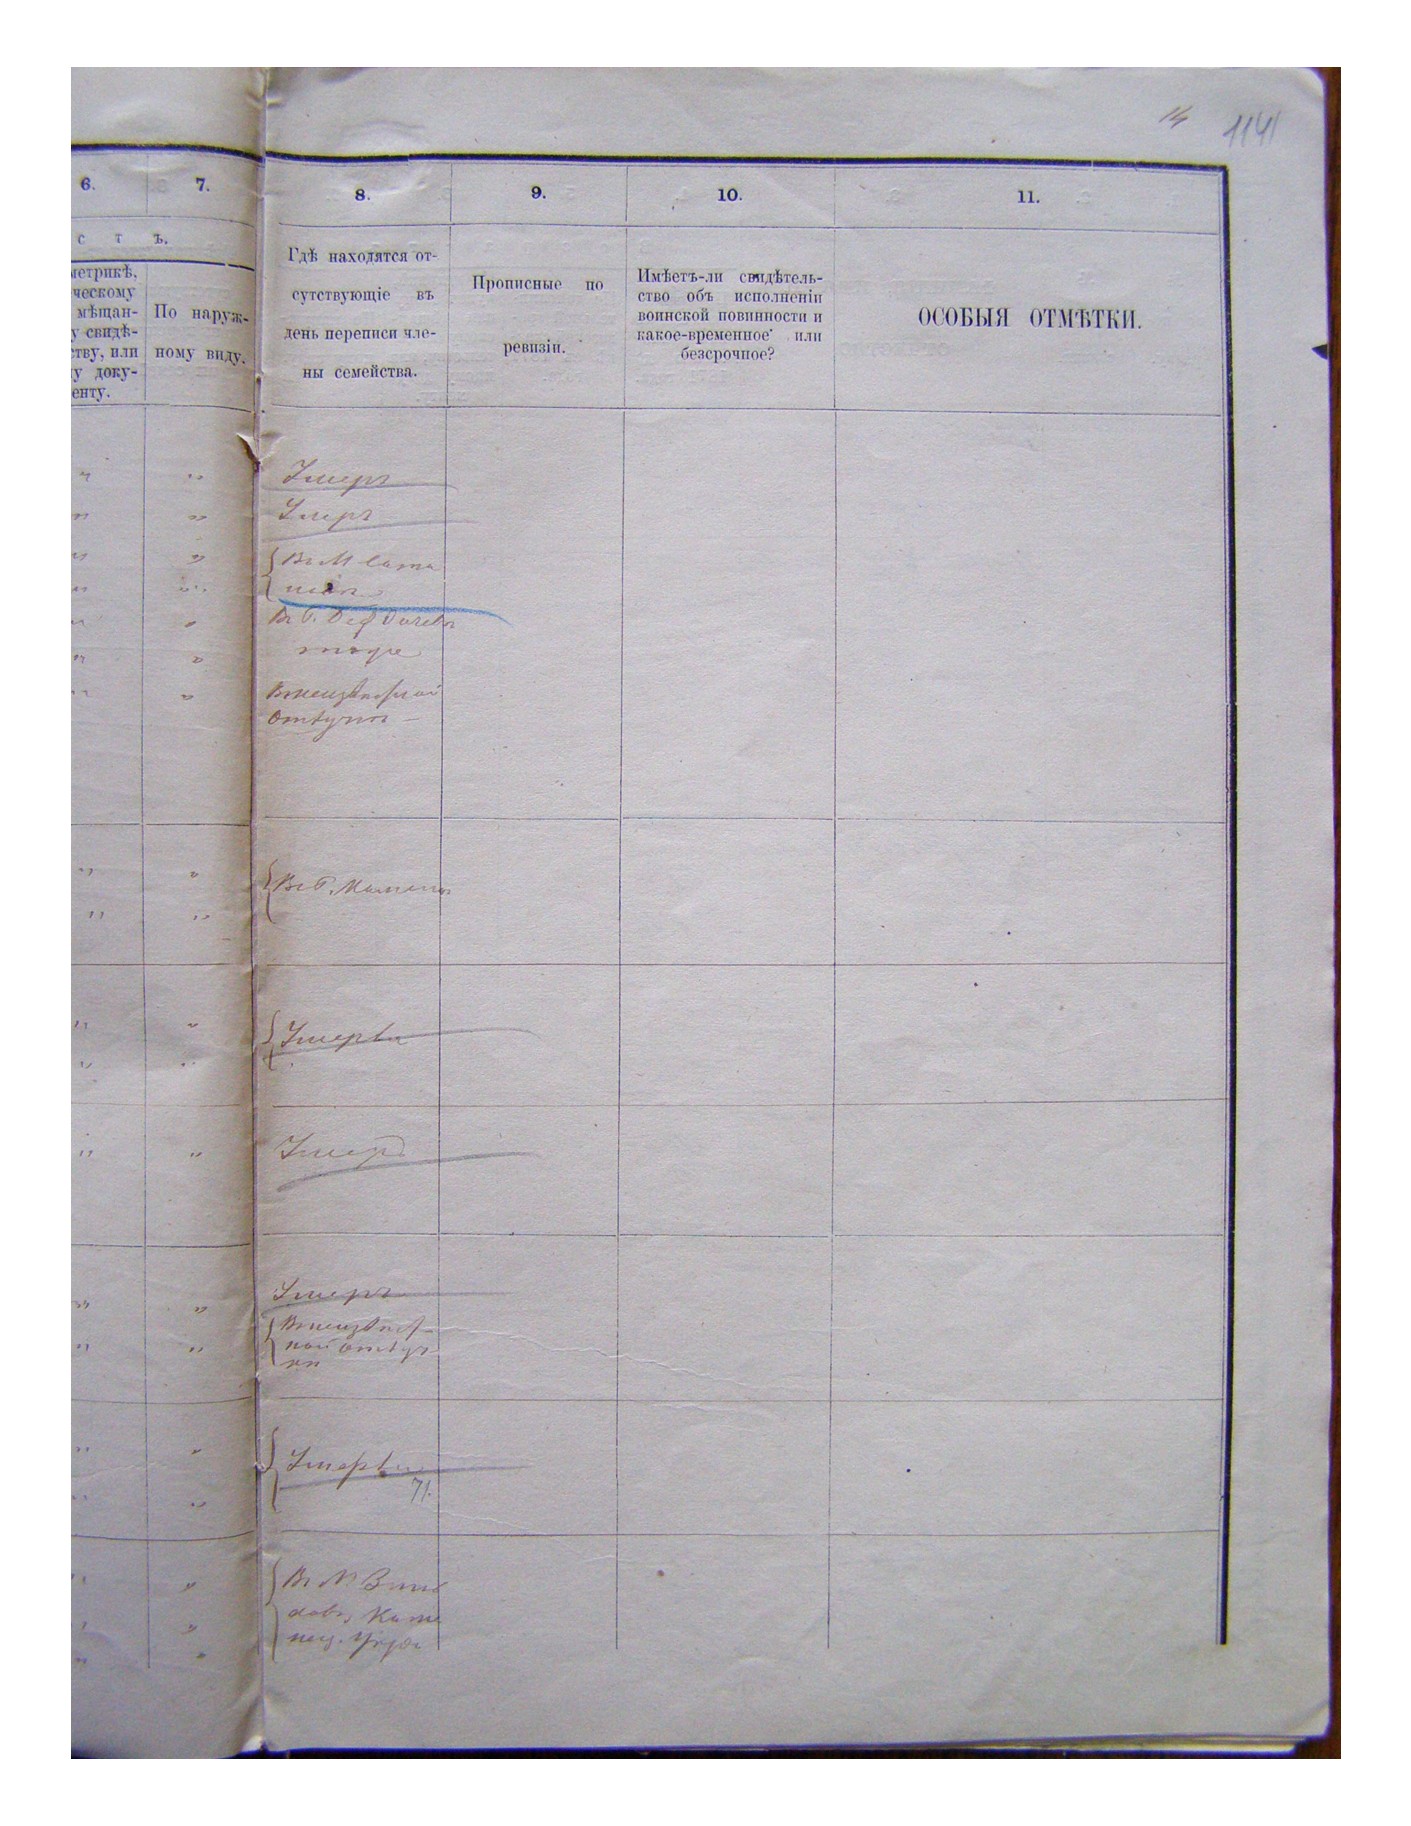 14 1141
6. 7. 8. 9. 10. 11.
с т ъ.
метрикѣ,
ческому
мѣщан-
у свидѣ-
ству, или
у доку-
енту.
По наруж-
ному виду.
Гдѣ находятся от-
сутствующіе въ
день переписи чле-
ны семейства.
Прописные по
ревизіи.
Имѣетъ-ли свидѣтель-
ство объ исполненіи
воинской повинности и
какое-временное или
безсрочное?
ОСОБЫЯ ОТМѢТКИ.
Умеръ
Умеръ
Въ М Сата
нов
Въ Г.
тоже
Въ неизвѣстной
отлучкѣ
Въ Г.
Умерли
Умеръ
Умеръ
Въ неизвѣст-
ной отлуч-
кѣ
Умерли
71.
Въ М
Каме
нец. уѣзда